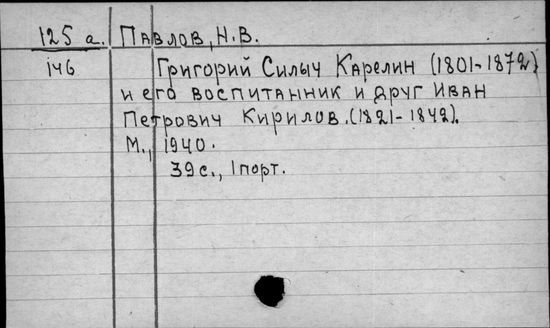 125 а. Павлов, Н.В.
146 Григорий Силыч Карелин (1801-1872)
и его воспитанник и друг Иван
Петрович Кирилов. (1821-1842).
М., 1940.
39 с., 1 порт.